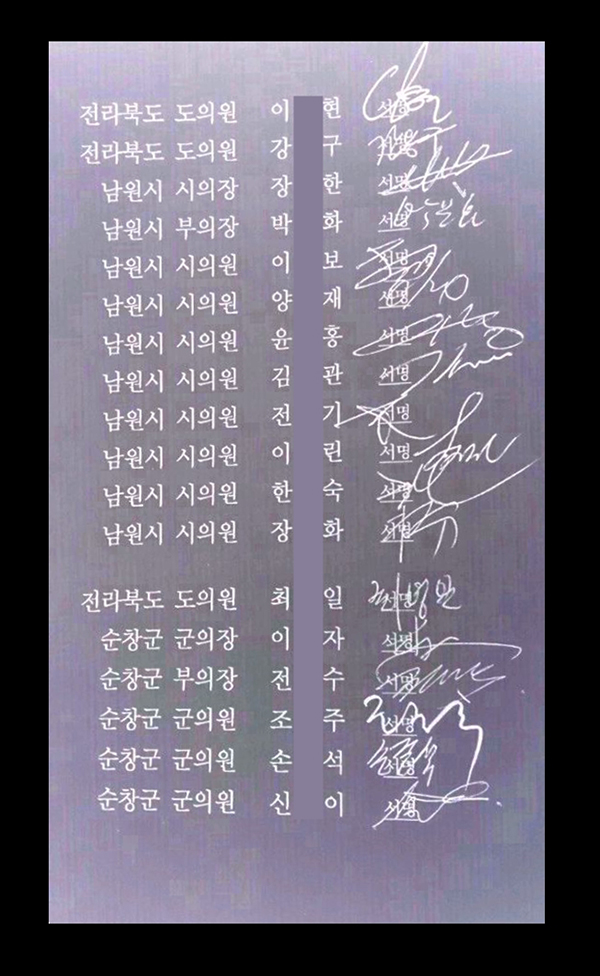 전라북도 도의원 이 현 서명
전라북도 도의원 강 구 서명
남원시 시의장 장 한 서명
남원시 부의장 박 화 서명
남원시 시의원 이 보 서명
남원시 시의원 양 재 서명
남원시 시의원 윤 홍 서명
남원시 시의원 김 관 서명
남원시 시의원 전 기 서명
남원시 시의원 이 린 서명
남원시 시의원 한 숙 서명
남원시 시의원 장 화 서명
전라북도 도의원 최 일 서명
순창군 군의장 이 자 서명
순창군 부의장 전 수 서명
순창군 군의원 조 주 서명
순창군 군의원 손 석 서명
순창군 군의원 신 이 서명